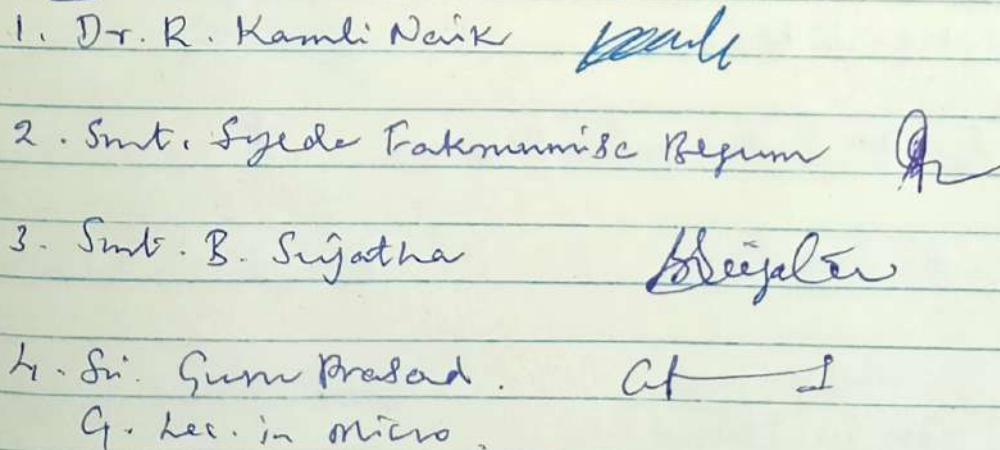 1. Dr. R. Kamli Naik
2. Smt. Syeda Fakrunnisa Begum
3. Smt. B. Sujatha BSujatha
4. Sri. Guru Prasad.
G. Lec. in Micro.